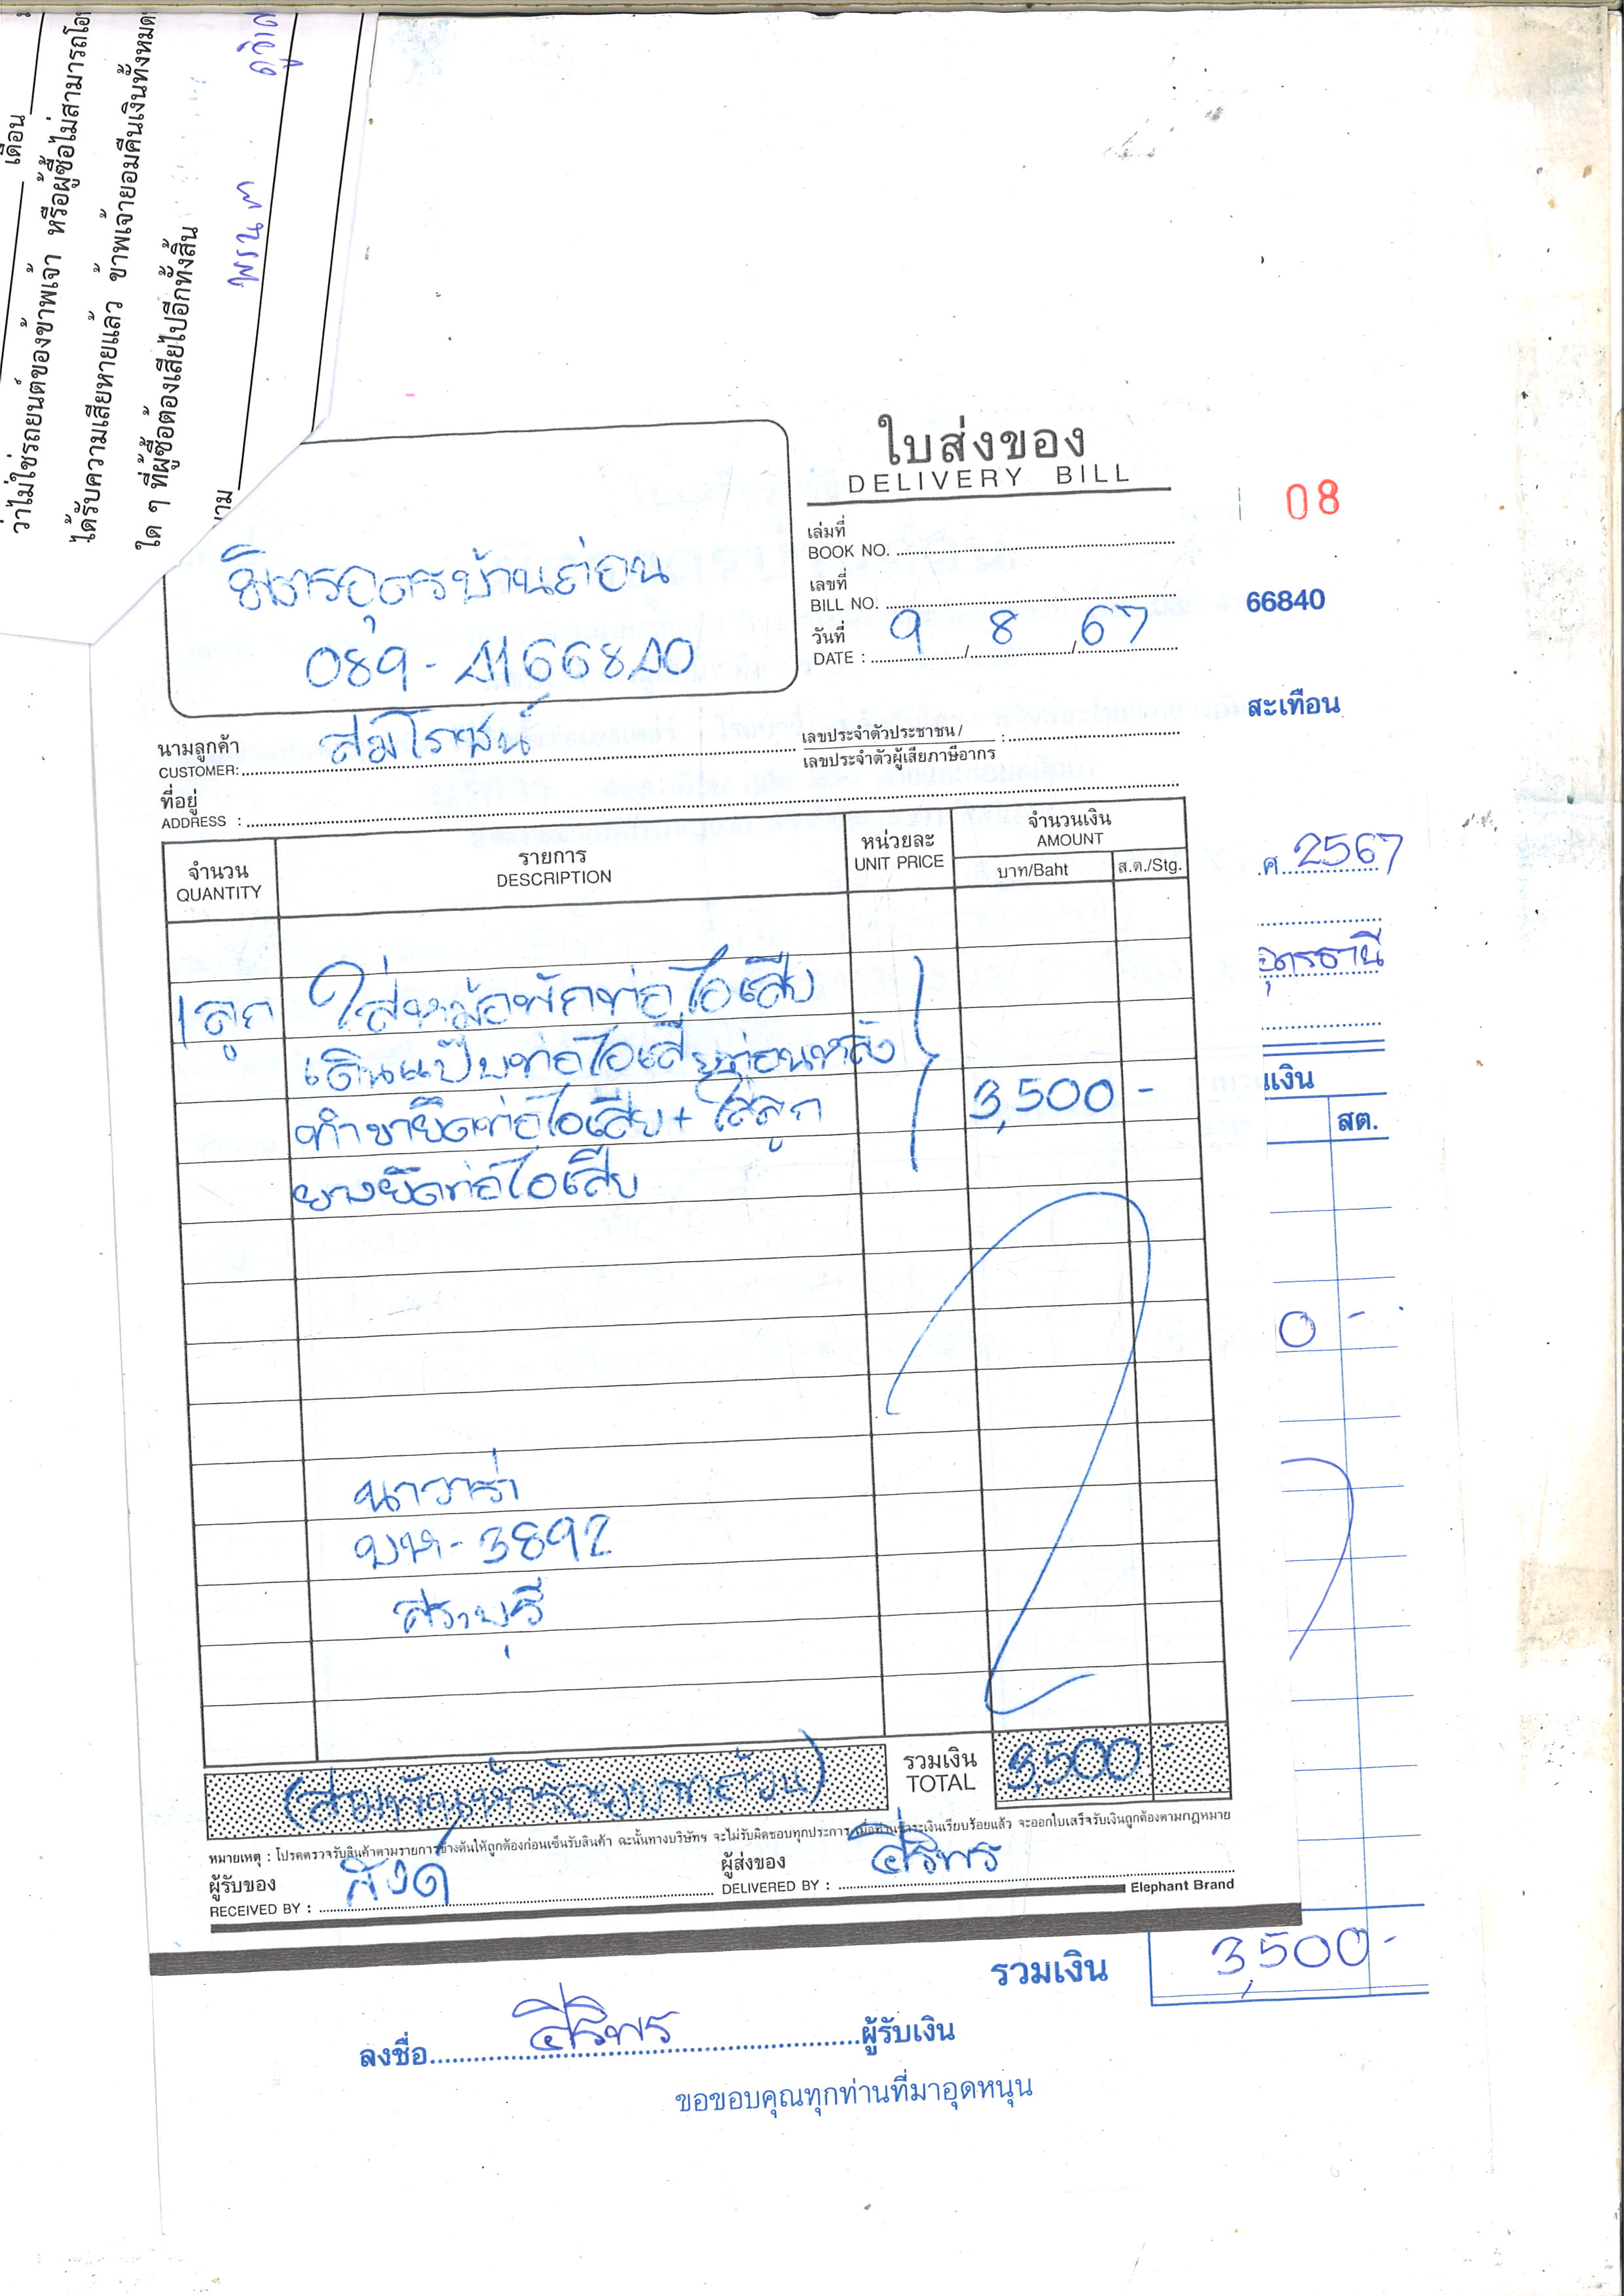 เดือน
ว่าไม่ใช่รถยนต์ของข้าพเจ้า หรือผู้ซื้อไม่สามารถโอน
ได้รับความเสียหายแล้ว ข้าพเจ้ายอมคืนเงินทั้งหมด
ใด ๆ ที่ผู้ซื้อต้องเสียไปอีกทั้งสิ้น
ใบส่งของ
DELIVERY BILL
08
เล่มที่
BOOK NO.
เลขที่
BILL NO.
66840
วันที่
DATE : 9 / 8 / 67
มิตรอุดรบ้านถ่อน
089-4166840
สะเทือน
นามลูกค้า
CUSTOMER: สมโภชน์
เลขประจำตัวประชาชน /
เลขประจำตัวผู้เสียภาษีอากร :
ที่อยู่
ADDRESS :
ศ. 2567
อุดรธานี
จำนวน
QUANTITY
รายการ
DESCRIPTION
หน่วยละ
UNIT PRICE
จำนวนเงิน
AMOUNT
บาท/Baht
ส.ต./Stg.
เงิน
สต.
1 ลูก ใส่หม้อพักท่อไอเสีย
เดินแป๊บท่อไอเสียท่อนหลัง
ทำขายึดท่อไอเสีย + ใส่ลูก 3,500 -
ยางยึดท่อไอเสีย
0 -
นาวาร่า
บห-3892
สระบุรี
(สามพันห้าร้อยบาทถ้วน)
รวมเงิน
TOTAL
3,500 -
หมายเหตุ : โปรดตรวจรับสินค้าตามรายการข้างต้นให้ถูกต้องก่อนเซ็นรับสินค้า ฉะนั้นทางบริษัทฯ จะไม่รับผิดชอบทุกประการ เมื่อท่านชำระเงินเรียบร้อยแล้ว จะออกใบเสร็จรับเงินถูกต้องตามกฎหมาย
ผู้รับของ
RECEIVED BY :
ผู้ส่งของ
DELIVERED BY : ศิริพร
Elephant Brand
รวมเงิน 3,500 -
ลงชื่อ ศิริพร ผู้รับเงิน
ขอขอบคุณทุกท่านที่มาอุดหนุน